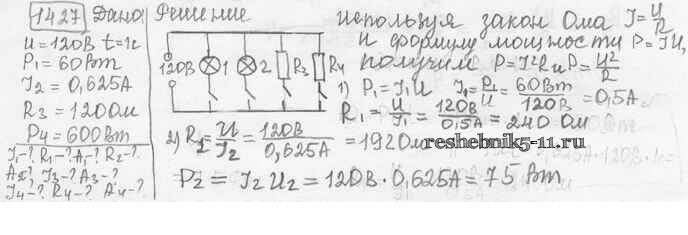 1427 Дано Решение
U=120В t=1с
P₁=60Вт
I₂=0,625А
R₃=120Ом
P₄=600Вт
I₁-? R₁-? A₁-? R₂-?
A₂? I₃-? A₃-?
I₄-? R₄-? A₄-?
120В 1 2 R₃ R₄
Используя закон Ома I=U/R
и формулу мощности P=IU,
получим P=I²R и P=U²/R
1) P₁=I₁U I₁=P₁/U=60Вт/120В=0,5А
R₁=U/I₁=120В/0,5А=240 Ом
2) R₂=U/I₂=120В/0,625А=192Ом
reshebnik5-11.ru
P₂=I₂U₂=120В·0,625А=75 Вт